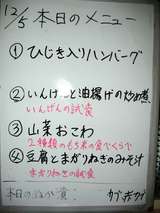 12/5 本日のメニュー
① ひじき入りハンバーグ
② いんげんと油揚げの炒め煮
いんげんの試食
③ 山菜おこわ
2種類のもち米の食べくらべ
④ 豆腐とまがりねぎのみそ汁
まがりねぎの試食
本日の